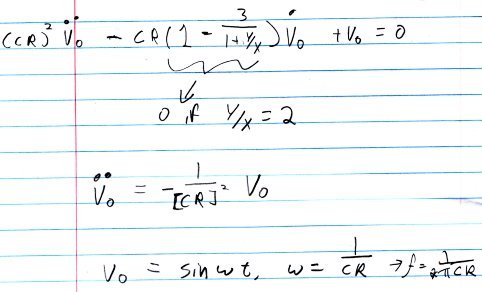 (CR)² V̈₀ - CR(1 - 3/(1+Y/X)) V̇₀ + V₀ = 0
0 if Y/X = 2
V̈₀ = - 1/[CR]² V₀
V₀ = sin ωt, ω = 1/CR → f = 1/2πCR